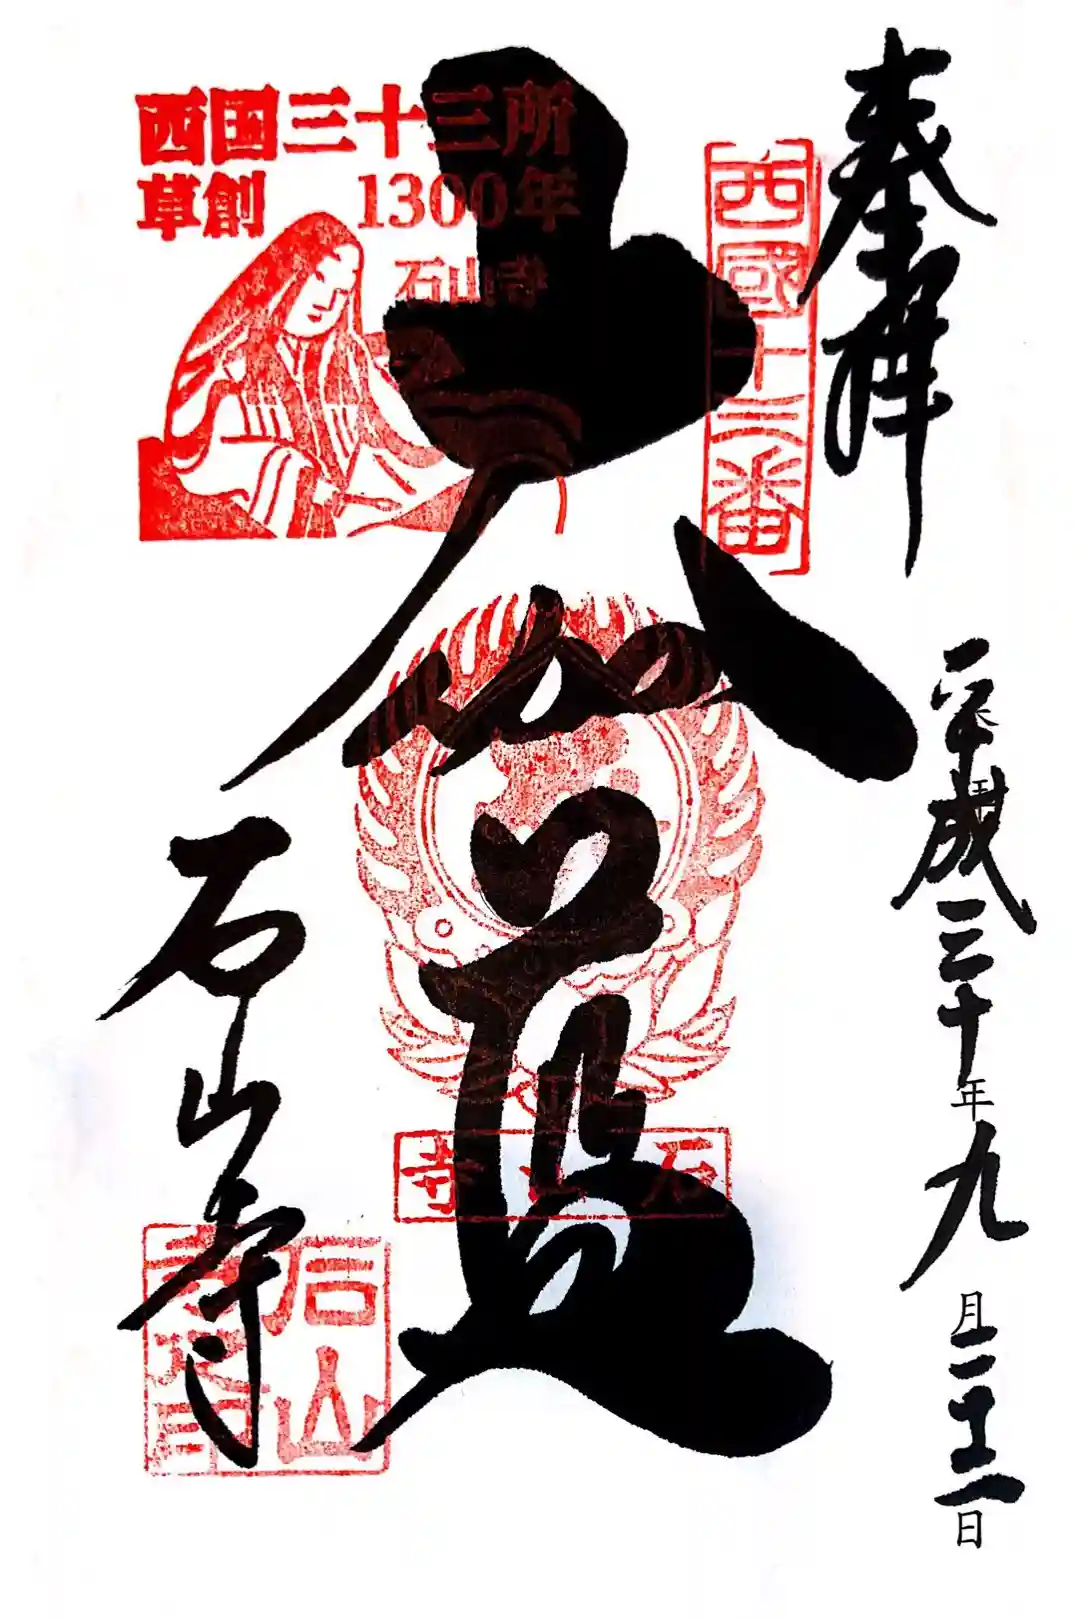 奉拝
平成三十年九月二十二日
西國十三番
西国三十三所
草創 1300年
石山寺
大伽藍
石山寺
石山寺
石山